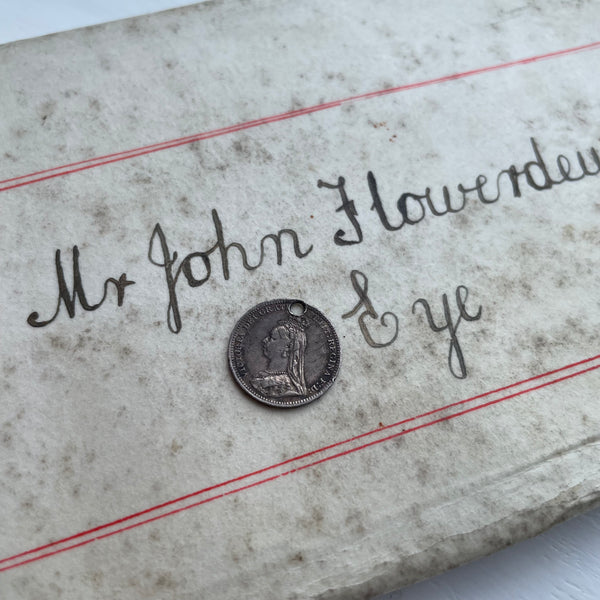 Mr John Flowerdew
Eye
VICTORIA DEI GRATIA REGINA F:D: